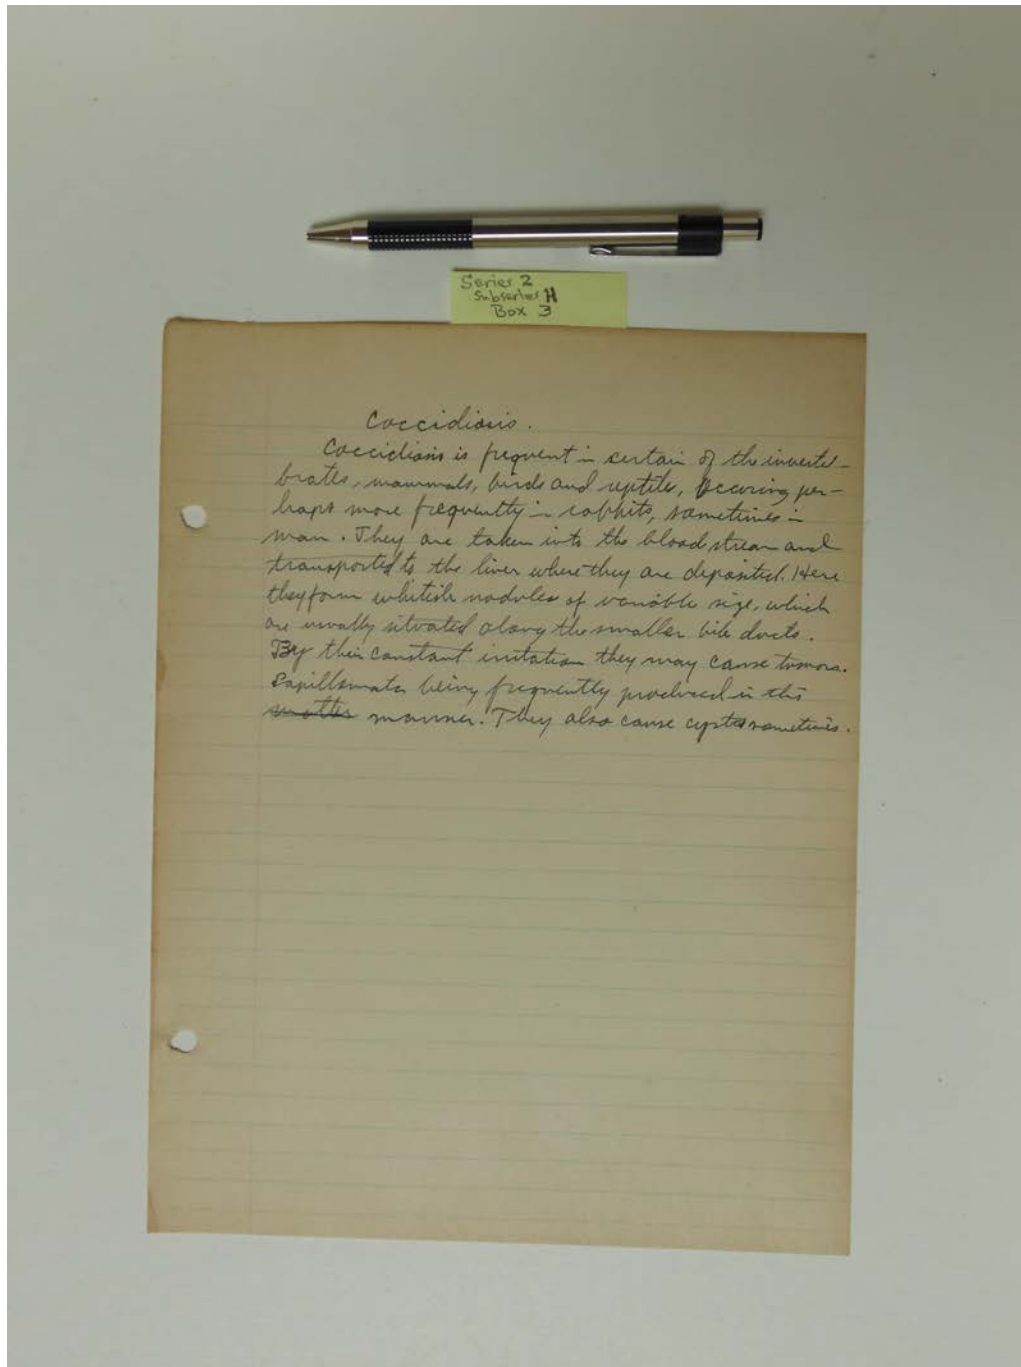 Series 2
Subseries H
Box 3
Coccidiosis.
Coccidiosis is frequent in certain of the inverte-
brates, mammals, birds and reptiles, Occuring per-
haps more frequently in rabbits, sometimes in
man. They are taken into the blood stream and
transported to the liver where they are deposited. Here
they form whitish nodules of variable size, which
are usually situated along the smaller bile ducts.
By their constant irritation they may cause tumors.
Papillomata being frequently produced in this
matter manner. They also cause cysts sometimes.